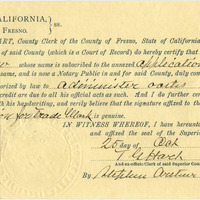 ALIFORNIA,
FRESNO. } ss.
ART, County Clerk of the County of Fresno, State of California
of said County (which is a Court of Record) do hereby certify that
whose name is subscribed to the annexed application
name, and is now a Notary Public in and for said County, duly comm
orized by law to administer oaths
credit are due to all his official acts such. And I do further cer
his handwriting, and verily believe that the signature affixed to th
on for Trade Mark is genuine.
IN WITNESS WHEREOF, I have hereunto
and affixed the seal of the Superior
20 day of Oct
Hart
And ex-officio Clerk of said Superior C
By Stephen